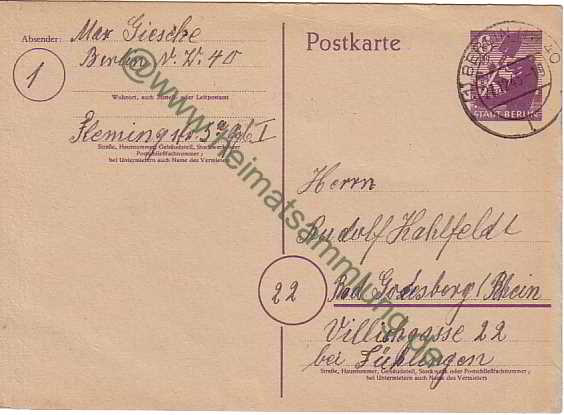 Absender: Max Giesche
Berlin N.W. 40
1
Wohnort, auch Zustell- oder Leitpostamt
Flemingstr. 5
Straße, Hausnummer, Gebäudeteil, Stockwerk oder
Postschließfachnummer;
bei Untermietern auch Name des Vermieters
Postkarte
6
STADT BERLIN
BERLIN NW 40
Herrn
Rudolf Kahlfeldt
22
Bad Godesberg/Rhein
Villichgasse 22
bei
Straße, Hausnummer, Gebäudeteil, Stockwerk oder Postschließfachnummer;
bei Untermietern auch Name des Vermieters
@www.Heimatsammlung.de